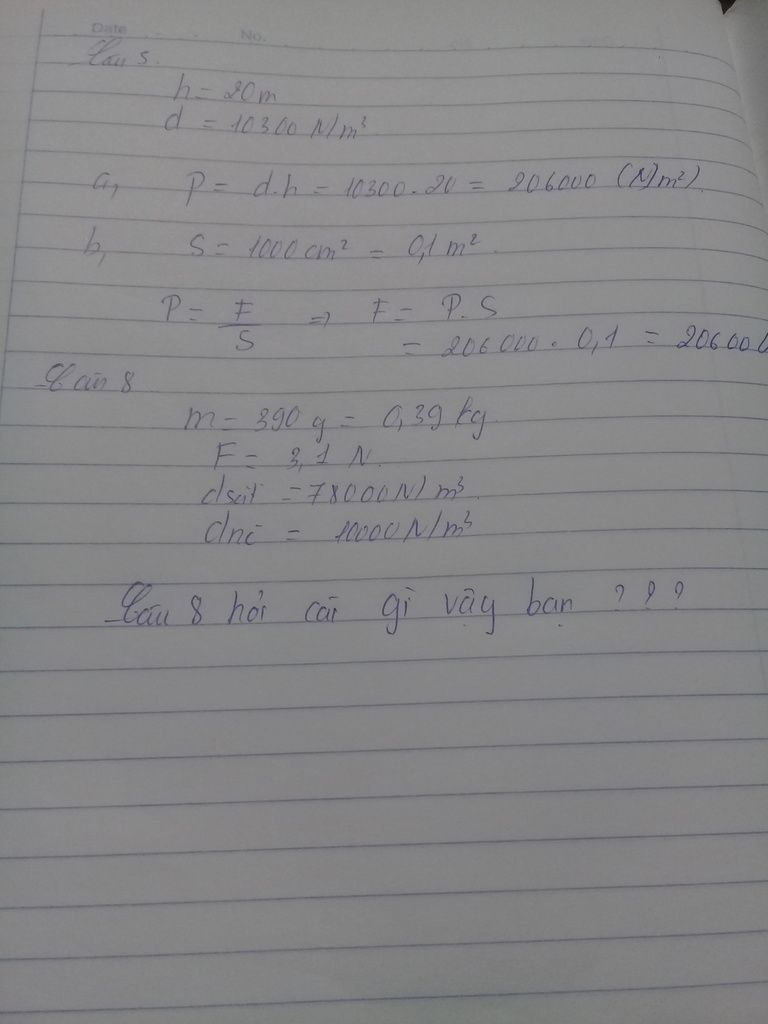 Date No.
Câu 5.
h = 20m
d = 10300 N/m³
a, P = d.h = 10300.20 = 206000 (N/m²).
b, S = 1000cm² = 0,1m².
P = F/S => F = P.S
= 206000.0,1 = 20600
Câu 8
m = 390g = 0,39kg.
F = 3,1 N.
dsắt = 78000N/m³.
dnc = 10000N/m³
Câu 8 hỏi cái gì vậy bạn ???